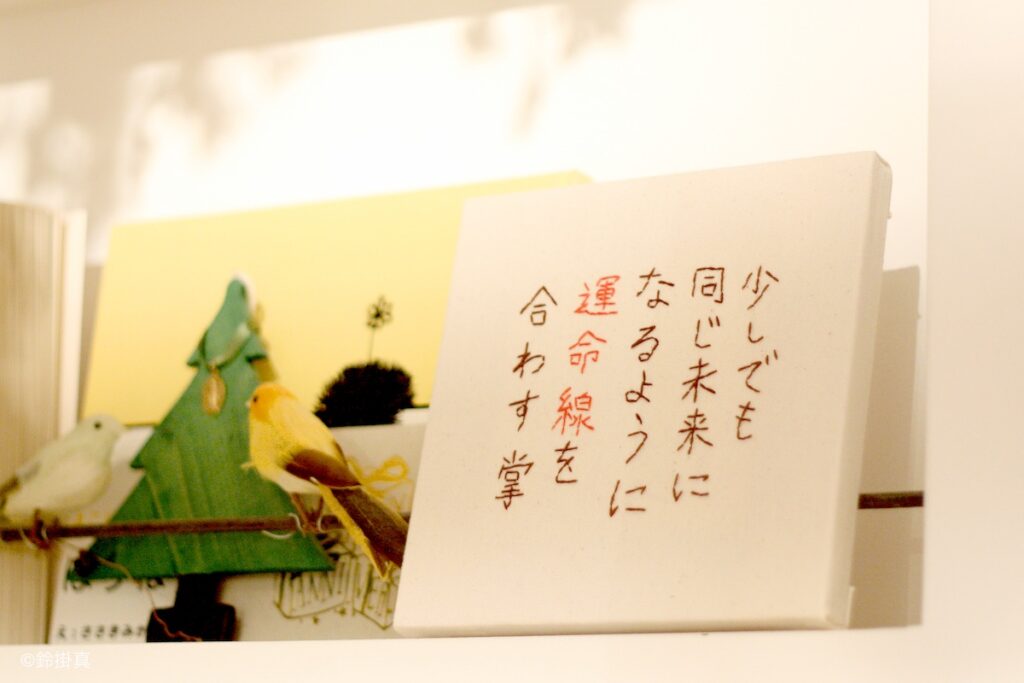 少しでも
同じ未来に
なるように
運命線を
合わす掌
©鈴掛真